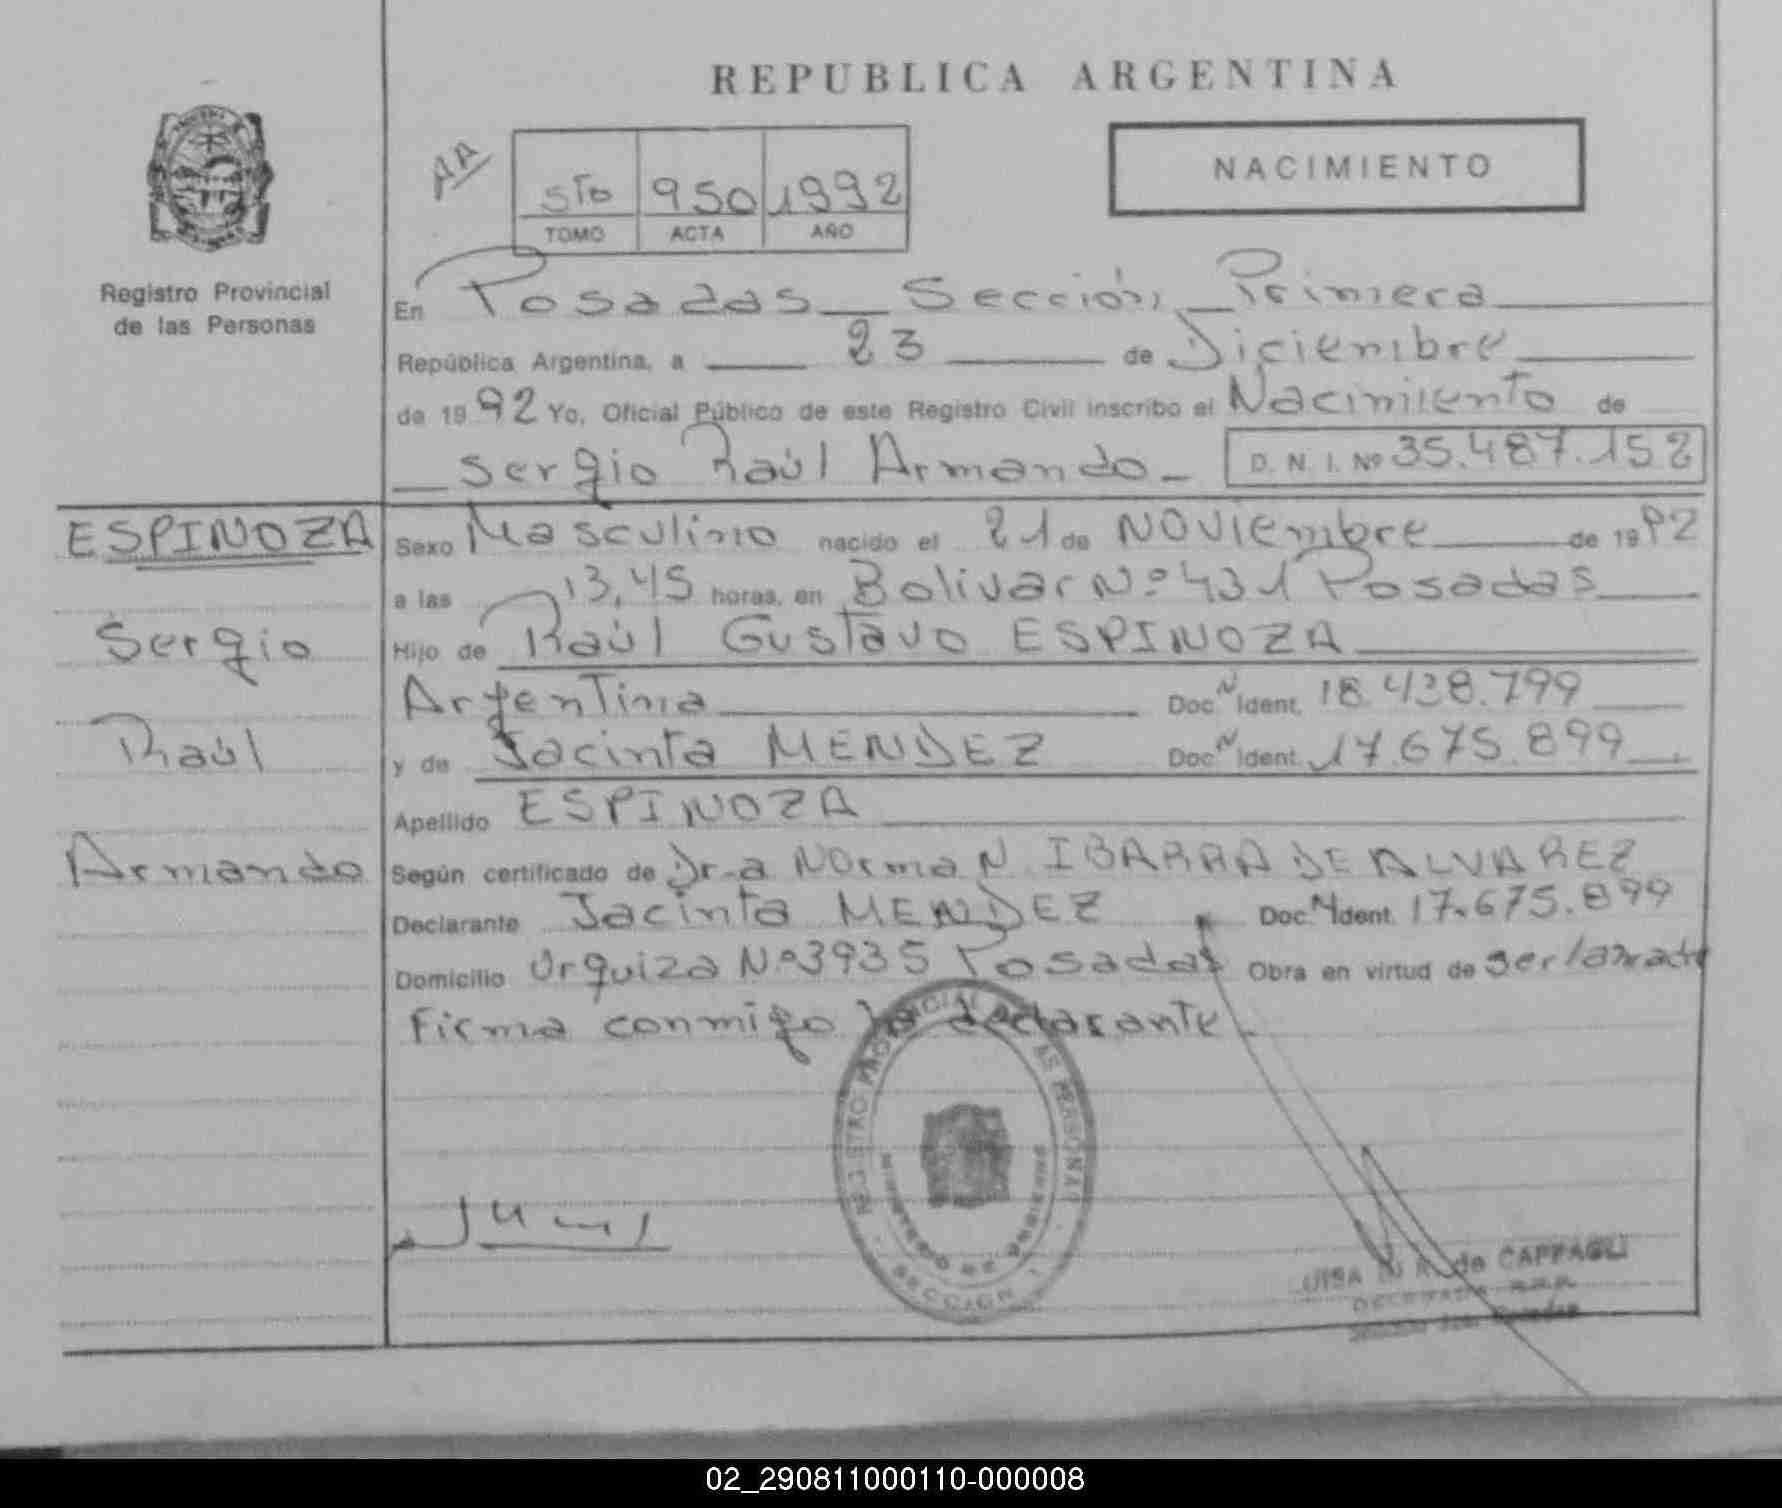 REPUBLICA ARGENTINA
AA
5to 950 1992
TOMO ACTA AÑO
NACIMIENTO
Registro Provincial
de las Personas
En Posadas Sección Primera
República Argentina, a 23 de Diciembre
de 1992 Yo, Oficial Público de este Registro Civil inscribo el Nacimiento de
Sergio Raúl Armando D. N. I. Nº 35.487.152
ESPINOZA
Sergio
Raúl
Armando
Sexo Masculino nacido el 21 de Noviembre de 1992
a las 13,45 horas, en Bolivar Nº 431 Posadas
Hijo de Raúl Gustavo ESPINOZA
Argentina Doc. N Ident. 18.438.799
y de Jacinta MENDEZ Doc. N Ident. 17.675.899
Apellido ESPINOZA
Según certificado de Dr-a Norma N. IBARRA DE ALVAREZ
Declarante Jacinta MENDEZ Doc. N Ident. 17.675.899
Domicilio Urquiza Nº 3935 Posadas Obra en virtud de ser la madre
Firma conmigo la declarante.
REGISTRO PROVINCIAL DE LAS PERSONAS
MINISTERIO DE GOBIERNO
SECCION 1
de CAPPAGLI
02_290811000110-000008